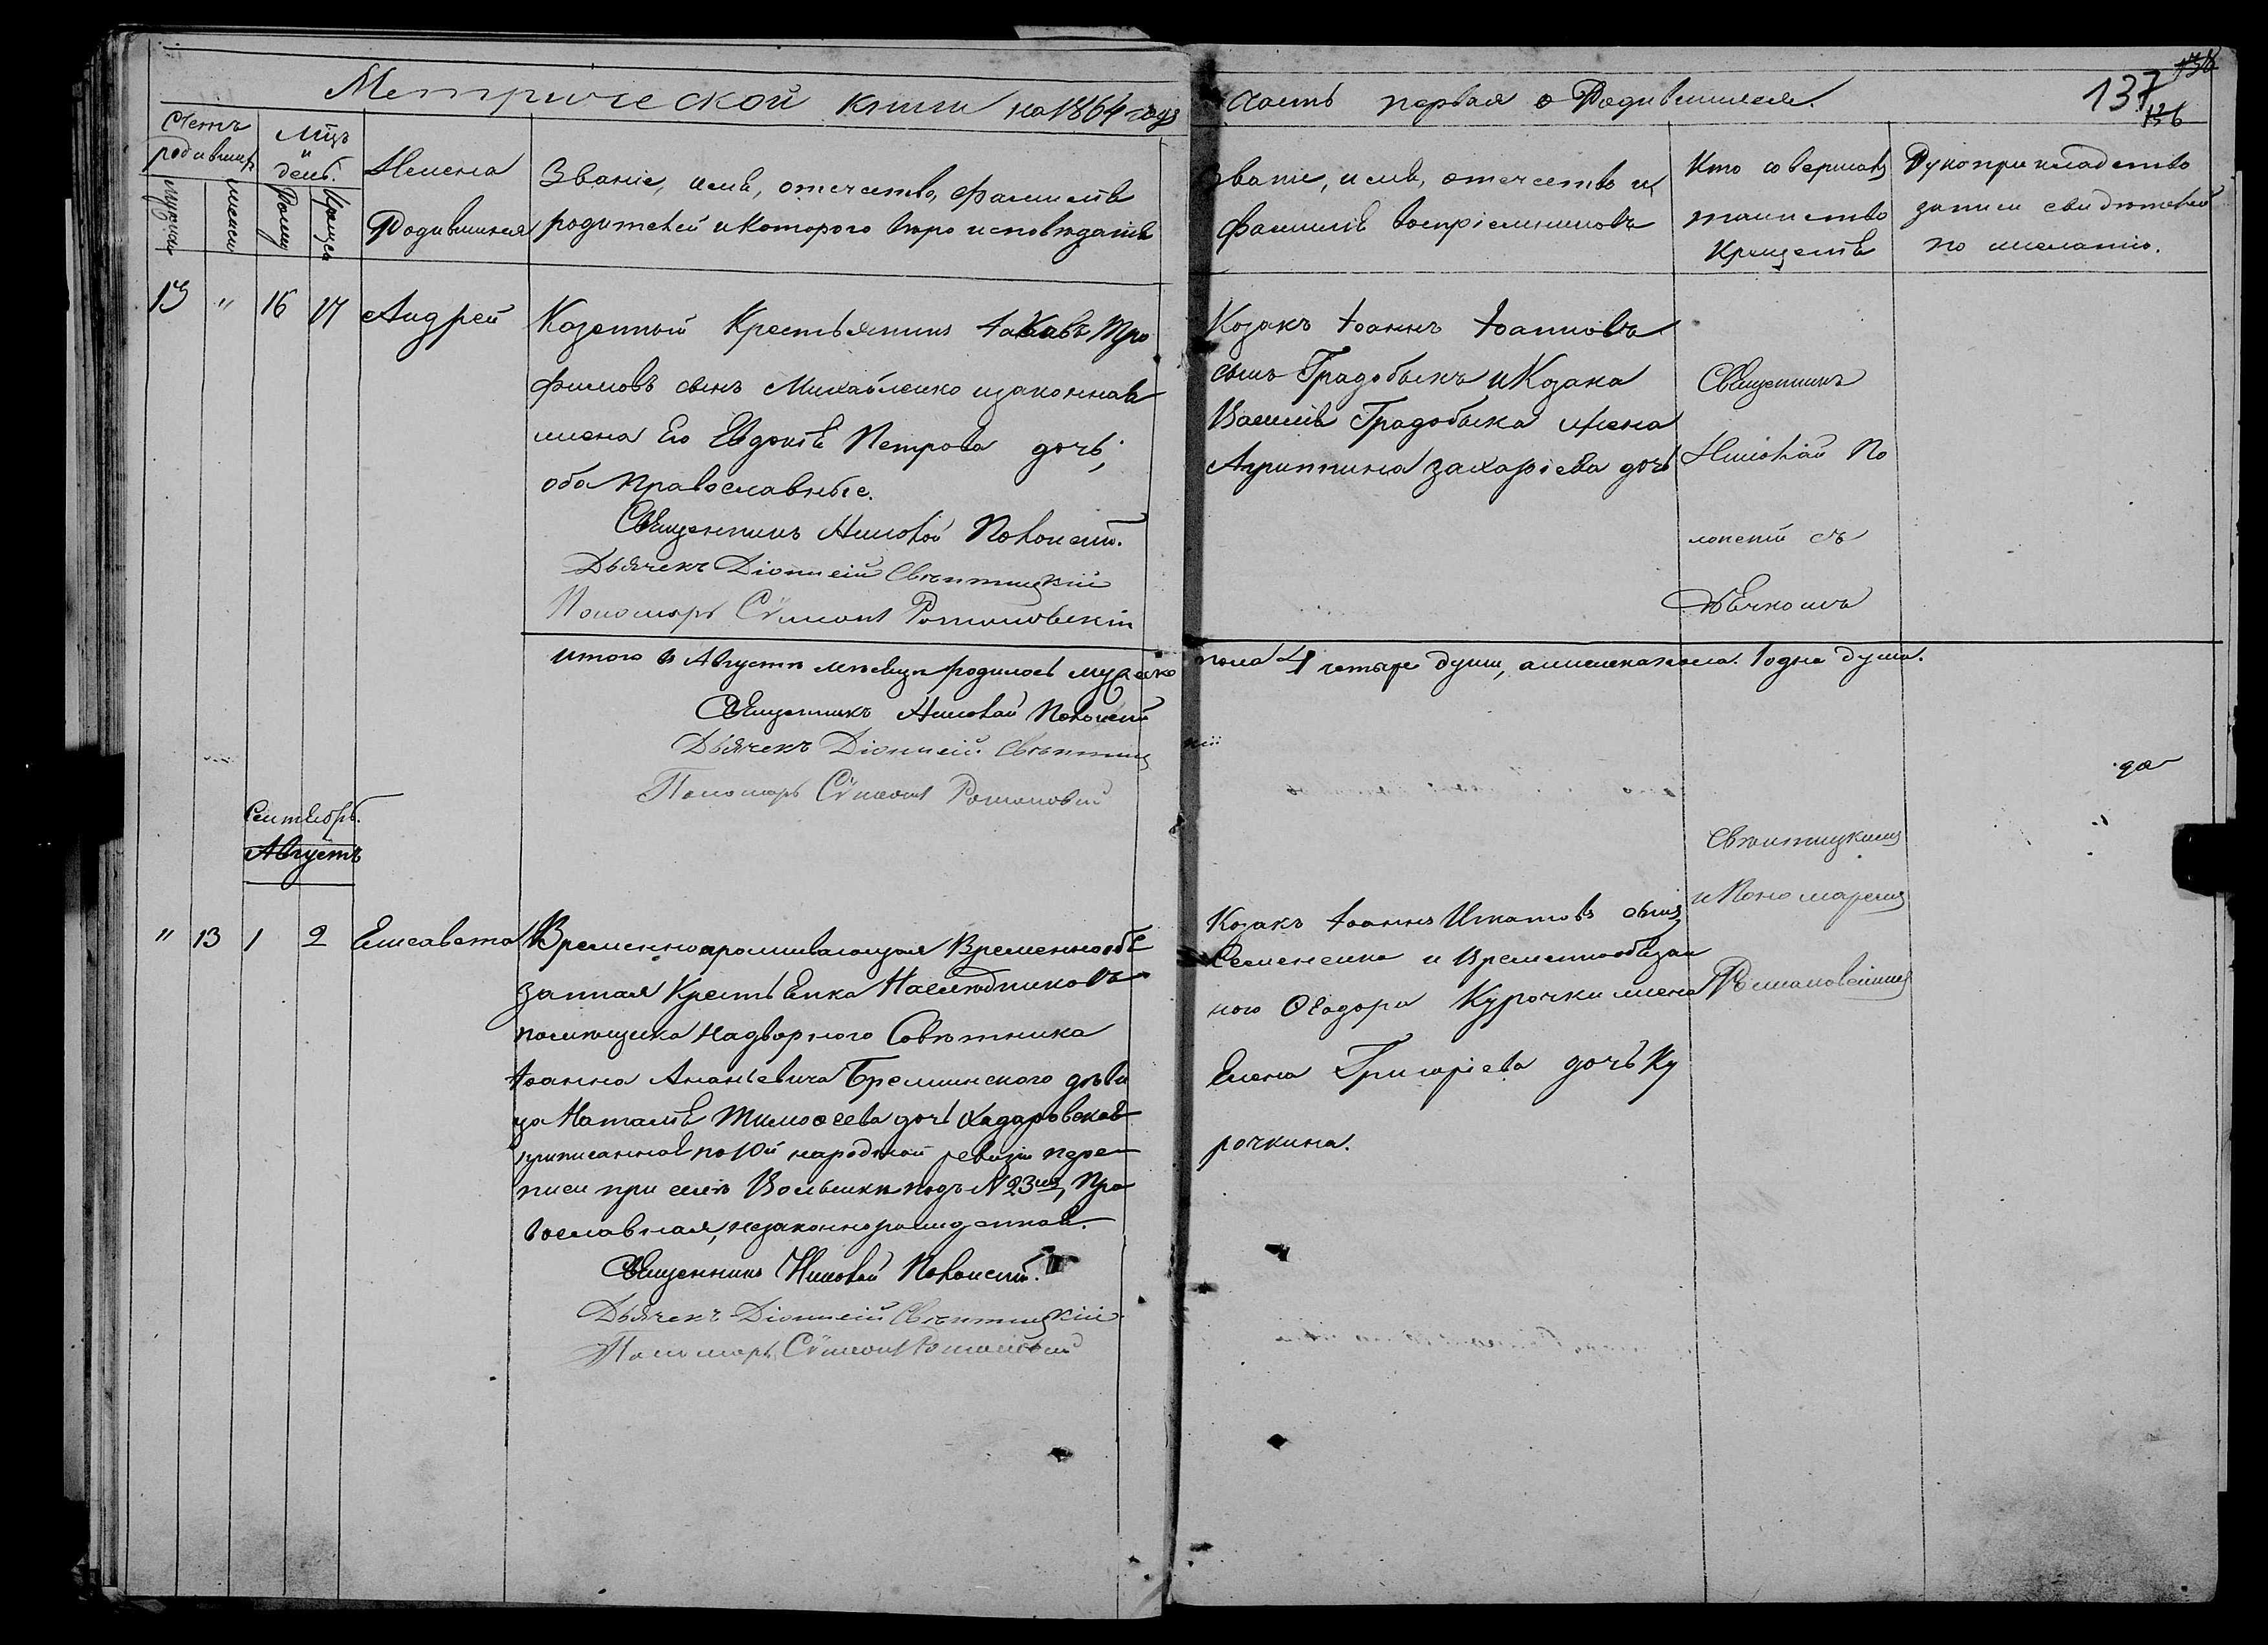 Метрической книги на 1864 годъ
Часть первая о Родившихся.
137
136
Счетъ родивших.
Мужска
женск
Мцъ и день.
Рожд
Крещен
Имена
Родившихся
Званіе, имя, отечество, фамилія
родителей и которого вѣроисповѣданія
Званіе, имя, отечество и
фамилія воспріемниковъ
Кто совершалъ
таинство
Крещенія
Рукоприкладство
записи свидѣтелей
по желанію.
13 " 16 17 Андрей
Казенный Крестьянинъ Іаковъ Тро
фимовъ сынъ Михайленко и законная
жена его Евдокія Петрова дочь,
оба Православные.
Священникъ Николай Полонскій.
Дьячекъ Діонисій Свѣнтицкій
Пономарь Сѵмеонъ Романовскій
Козакъ Іоаннъ Іоанновъ
сынъ Градобыкъ и Козака
Василія Градобыка жена
Агриппина Захаріева дочь
Священникъ
Николай По
лонскій съ
Дьячкомъ
Свѣнтицкимъ
и Пономаремъ
Романовскимъ
Итого въ Августѣ мѣсяцѣ родилось мужеско
пола 4 четыре души, а женска пола 1 одна душа.
Священникъ Николай Полонскій
Дьячекъ Діонисій Свѣнтиц
кій
Пономарь Сѵмеонъ Романовскій
Сентябрь.
Августъ
" 13 1 2 Елисавета
Временнопроживающая Временнообя
занная Крестьянка Наслѣдниковъ
помѣщика Надворного Совѣтника
Іоанна Ананьевича дѣви
ца Наталія Тимоѳеева дочь
приписанная по 10й народной ревизіи пере
писи при селѣ подъ N 23мъ, Пра
вославная, незаконнорожденной.
Священникъ Николай Полонскій.
Дьячекъ Діонисій Свѣнтицкій
Пономарь Сѵмеонъ Романовскій
Козакъ Іоаннъ Игнатовъ сынъ
Семененко и Временнообязан
ного Ѳеодора Курочки жена
Елена Григоріева дочь Ку
рочкина.